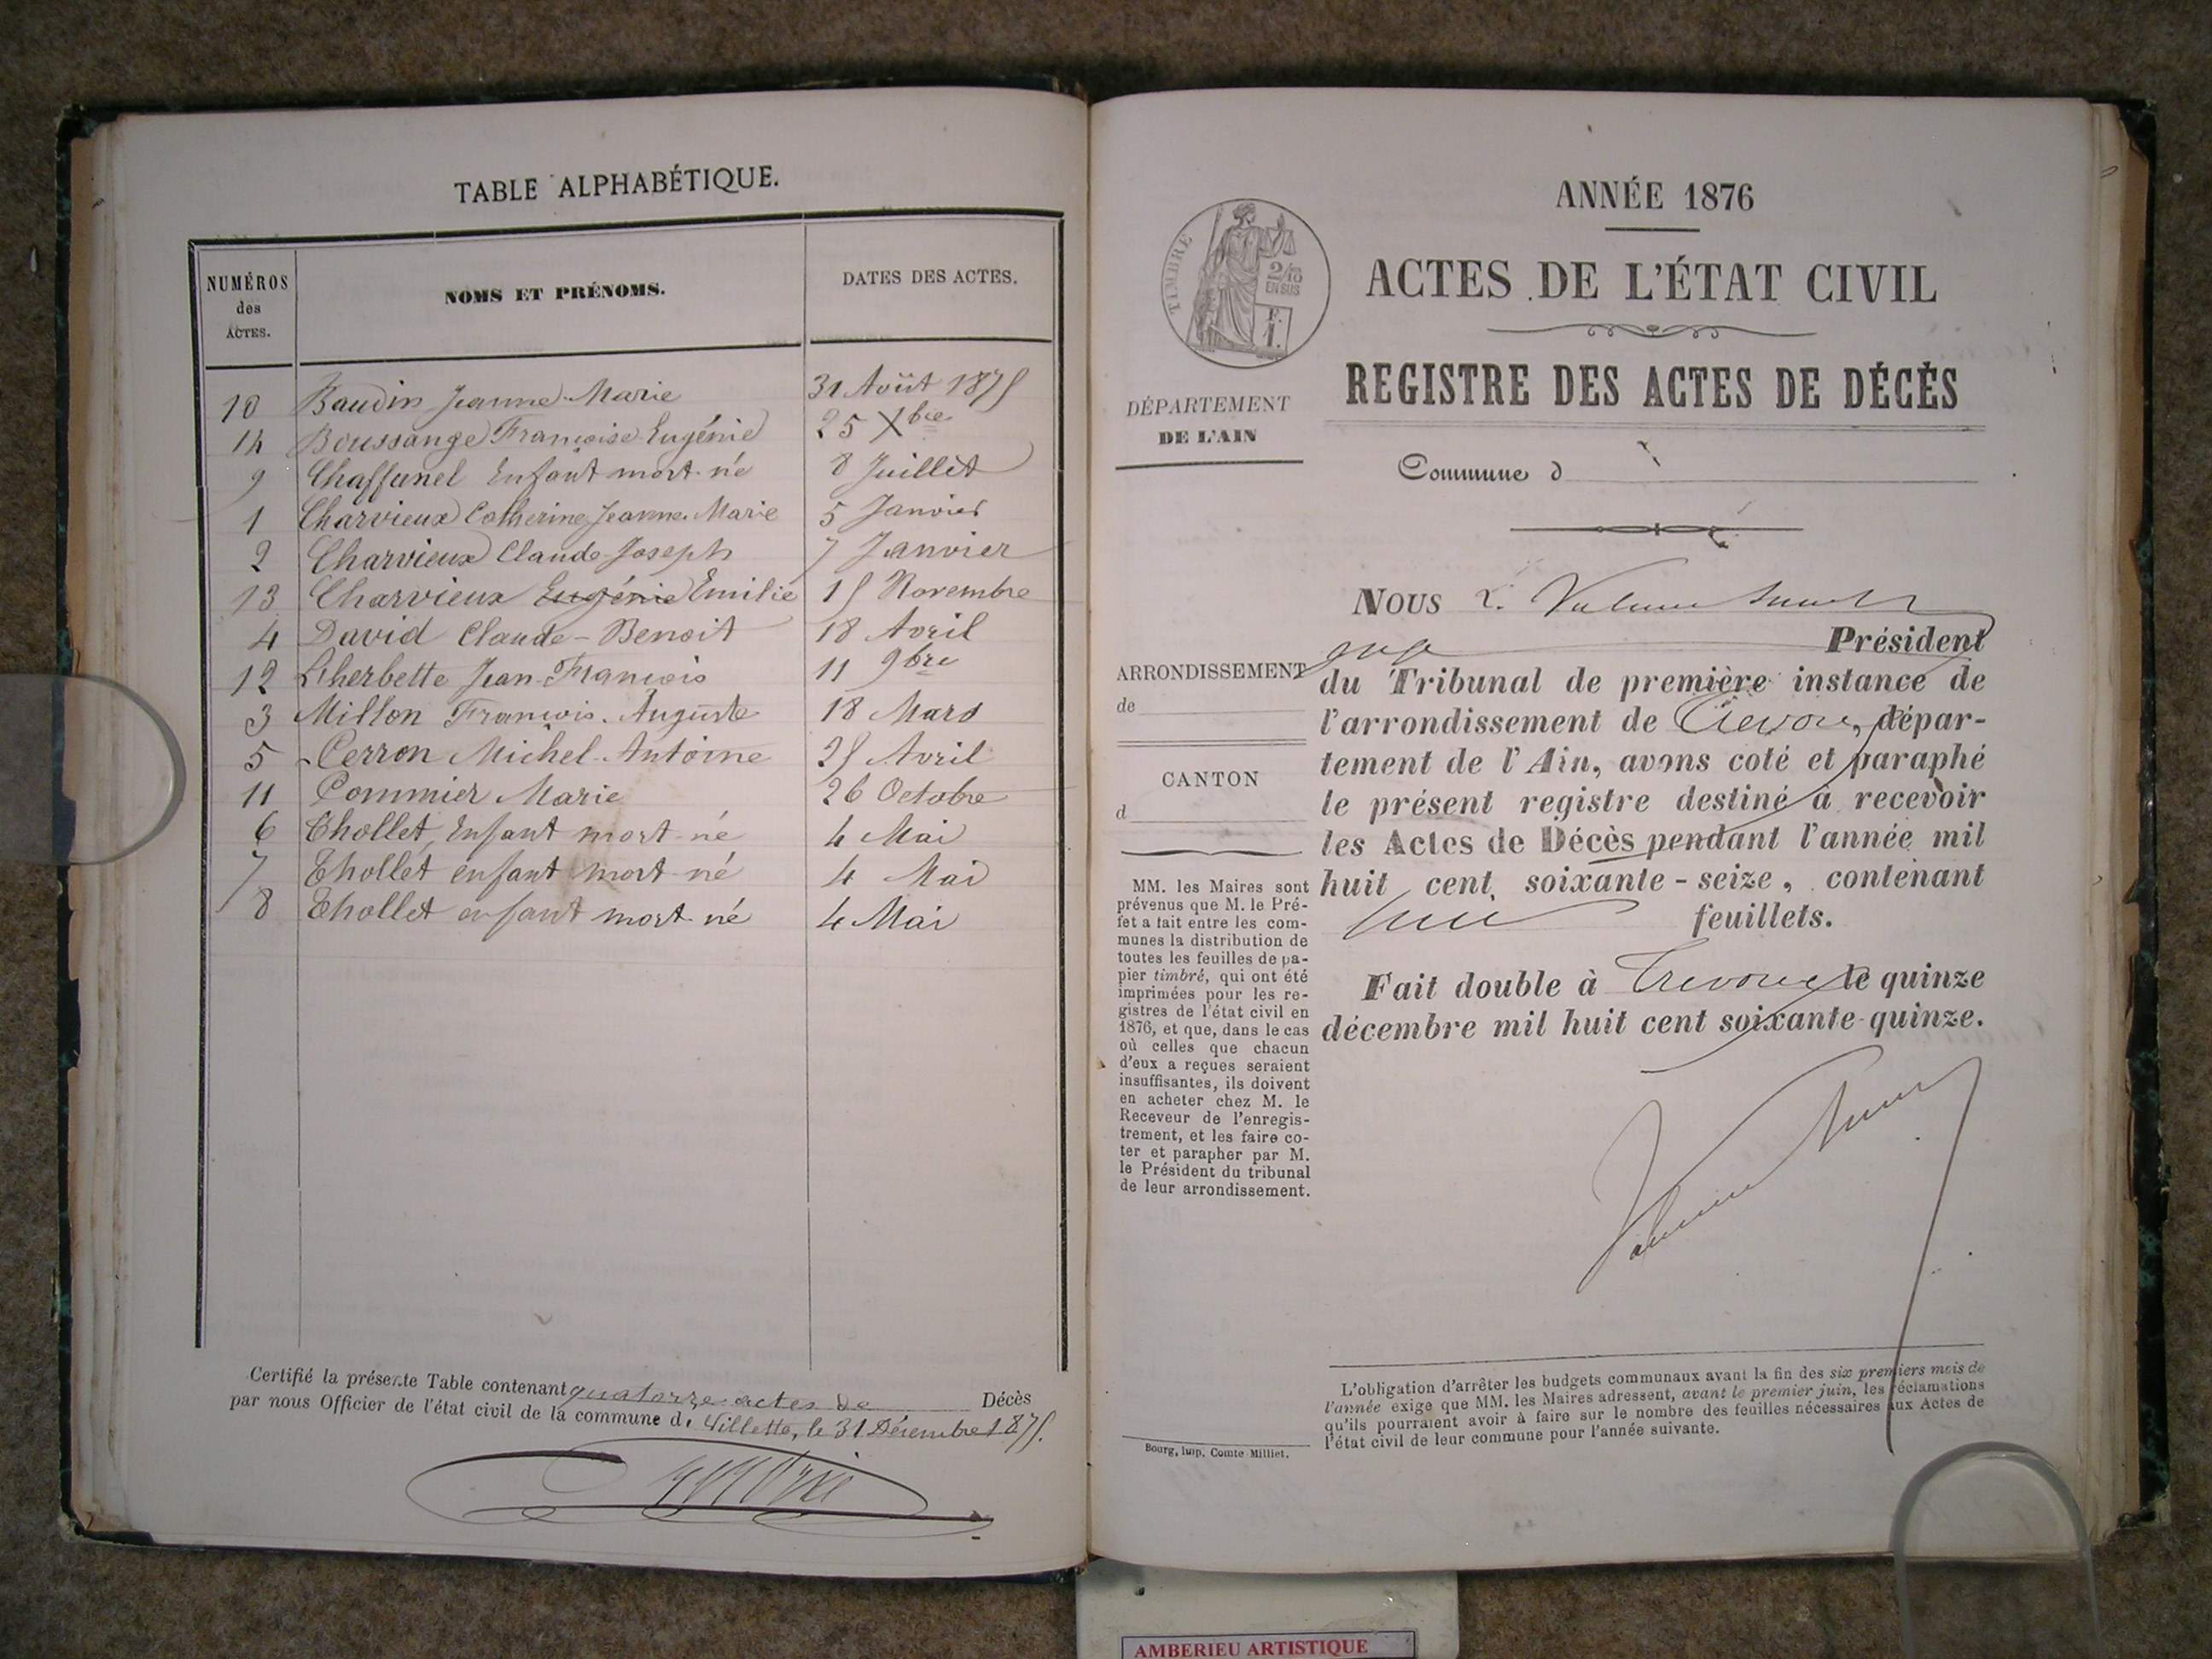 TABLE ALPHABÉTIQUE.
NUMÉROS
des
ACTES.
NOMS ET PRÉNOMS.
DATES DES ACTES.
10 Baudin Jeanne Marie 31 Août 1875
14 Boussange Françoise Eugénie 25 Xbre
9 Chaffunel Enfant mort-né 8 Juillet
1 Charvieux Catherine Jeanne-Marie 5 Janvier
2 Charvieux Claude Joseph 7 Janvier
13 Charvieux Eugénie Emilie 15 Novembre
4 David Claude-Benoit 18 Avril
12 Lherbette Jean-François 11 9bre
3 Millon François-Auguste 18 Mars
5 Perron Michel-Antoine 25 Avril
11 Pommier Marie 26 Octobre
6 Thollet Enfant mort-né 4 Mai
7 Thollet enfant mort-né 4 Mai
8 Thollet enfant mort-né 4 Mai
Certifié la présente Table contenant quatorze actes de Décès
par nous Officier de l'état civil de la commune d. Villette, le 31 Décembre 1875.
ANNÉE 1876
ACTES DE L'ÉTAT CIVIL
REGISTRE DES ACTES DE DÉCÈS
TIMBRE
2/10
EN SUS
F.
1.
DÉPARTEMENT
DE L'AIN
Commune d
ARRONDISSEMENT
de
CANTON
d
MM. les Maires sont
prévenus que M. le Pré-
fet a fait entre les com-
munes la distribution de
toutes les feuilles de pa-
pier timbré, qui ont été
imprimées pour les re-
gistres de l'état civil en
1876, et que, dans le cas
où celles que chacun
d'eux a reçues seraient
insuffisantes, ils doivent
en acheter chez M. le
Receveur de l'enregis-
trement, et les faire co-
ter et parapher par M.
le Président du tribunal
de leur arrondissement.
NOUS
Président
du Tribunal de première instance de
l'arrondissement de Trévoux, dépar-
tement de l'Ain, avons coté et paraphé
le présent registre destiné à recevoir
les Actes de Décès pendant l'année mil
huit cent soixante-seize, contenant
feuillets.
Fait double à Trévoux le quinze
décembre mil huit cent soixante-quinze.
L'obligation d'arrêter les budgets communaux avant la fin des six premiers mois de
l'année exige que MM. les Maires adressent, avant le premier juin, les réclamations
qu'ils pourraient avoir à faire sur le nombre des feuilles nécessaires aux Actes de
l'état civil de leur commune pour l'année suivante.
Bourg, imp. Comte-Milliet.
AMBERIEU ARTISTIQUE